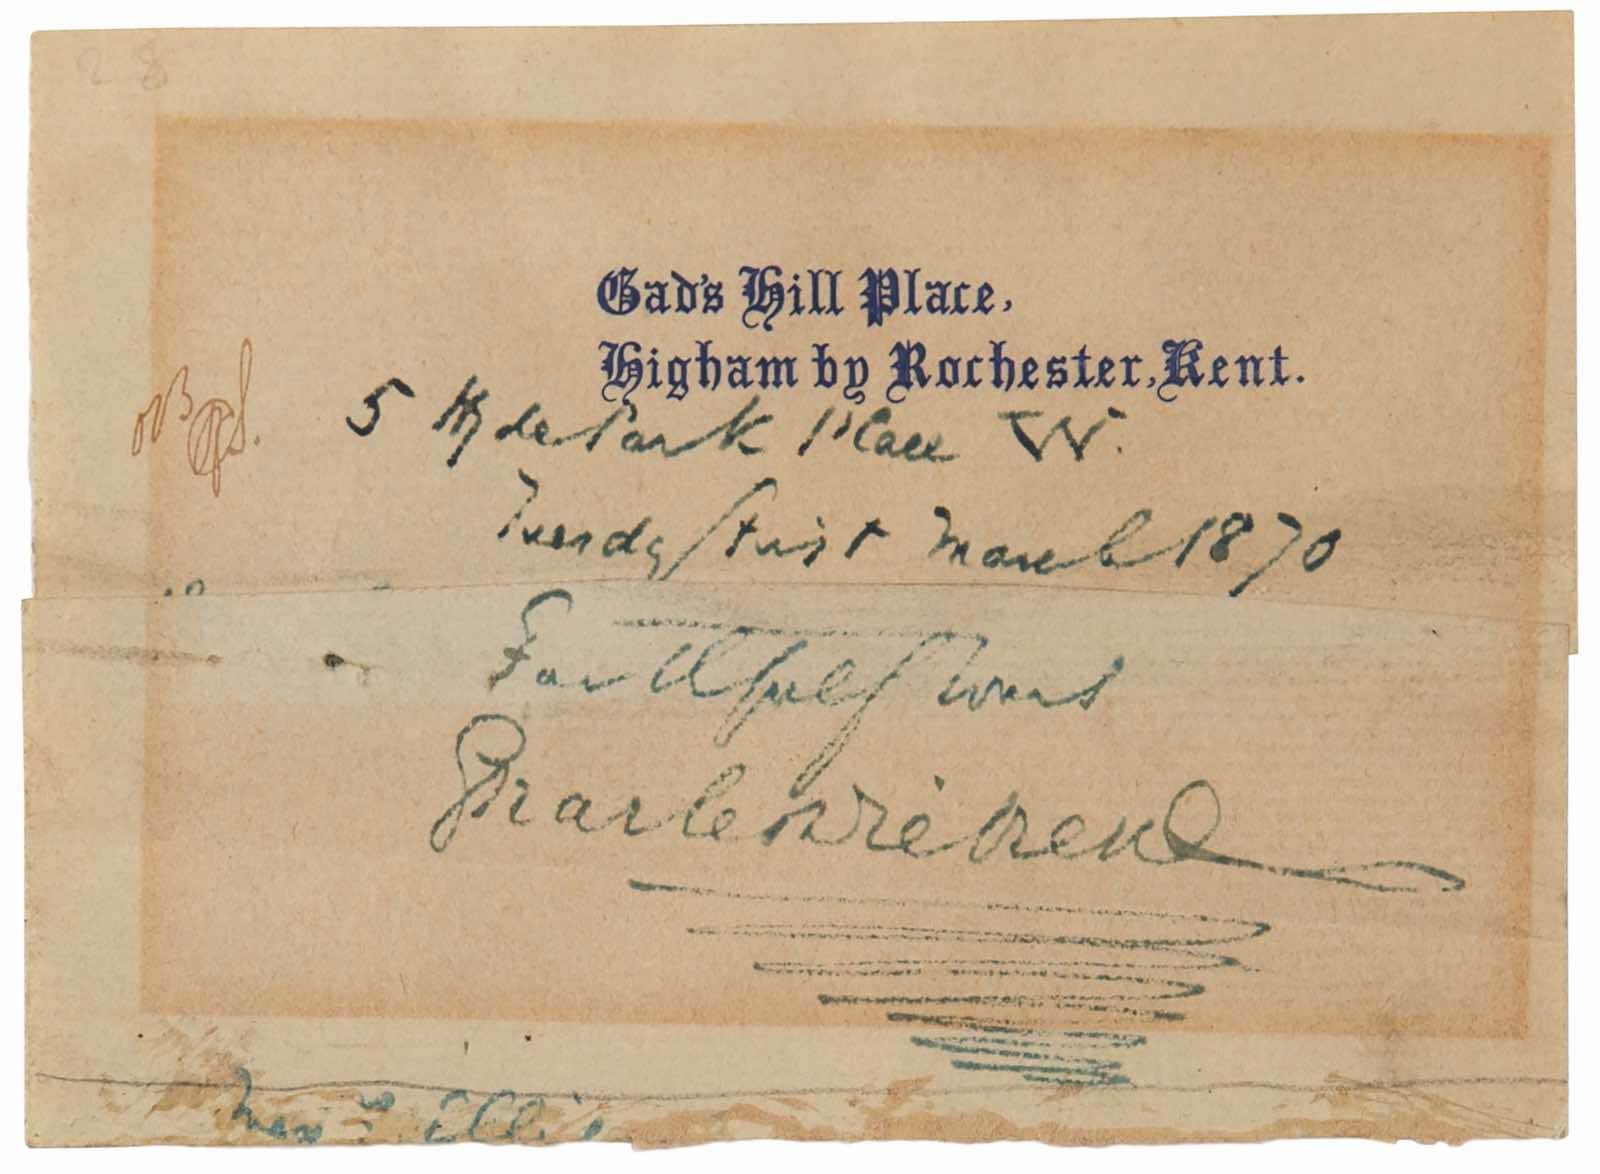 28
Gad's Hill Place,
Higham by Rochester, Kent.
5 Hyde Park Place W.
Tuesday first March 1870
Faithfully Yours
Charles Dickens
Ellis